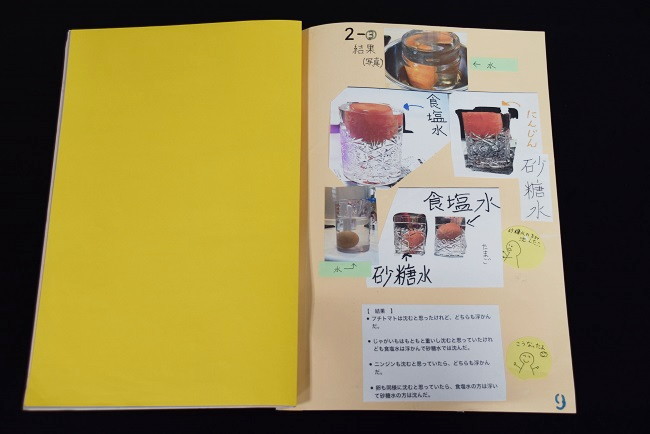 2-③
結果
(写真)
← 水
食塩水
にんじん
砂糖水
食塩水
たまご
水
砂糖水
こうなったよ
【 結果 】
● プチトマトは沈むと思ったけれど、どちらも浮かん
だ。
● じゃがいもはもともと重いし沈むと思っていたけれ
ども食塩水は浮かんで砂糖水では沈んだ。
● ニンジンも沈むと思っていたら、どちらも浮かん
だ。
● 卵も同様に沈むと思っていたら、食塩水の方は浮い
て砂糖水の方は沈んだ。
9